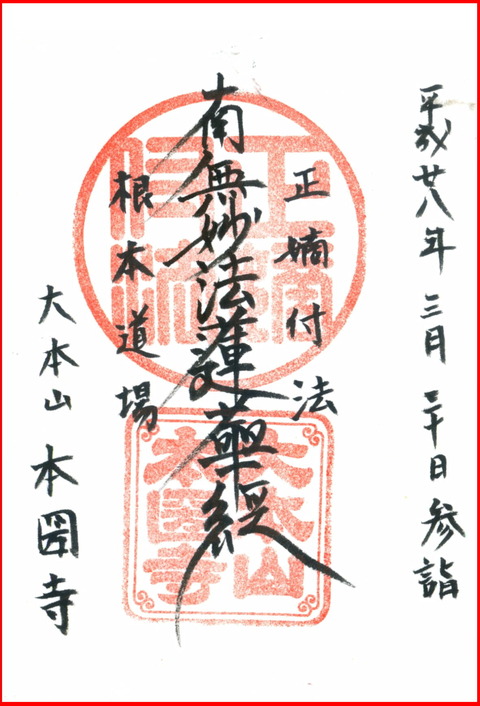 平成廿八年 三月 二十日 参詣
正嫡付法
南無妙法蓮華経
根本道場
大本山 本圀寺
大本山
本圀寺